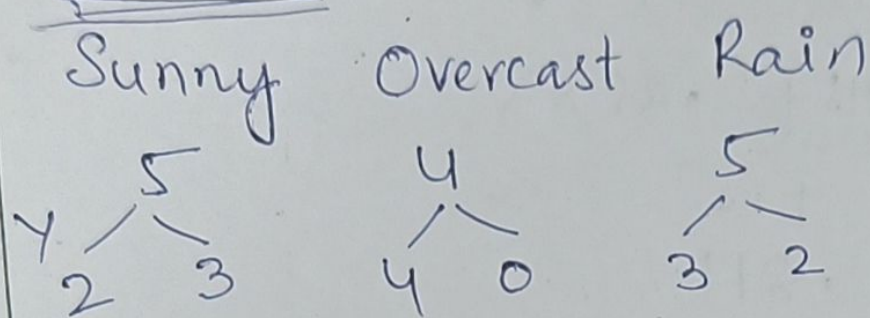 Sunny Overcast Rain
5 4 5
Y 2 3 4 0 3 2